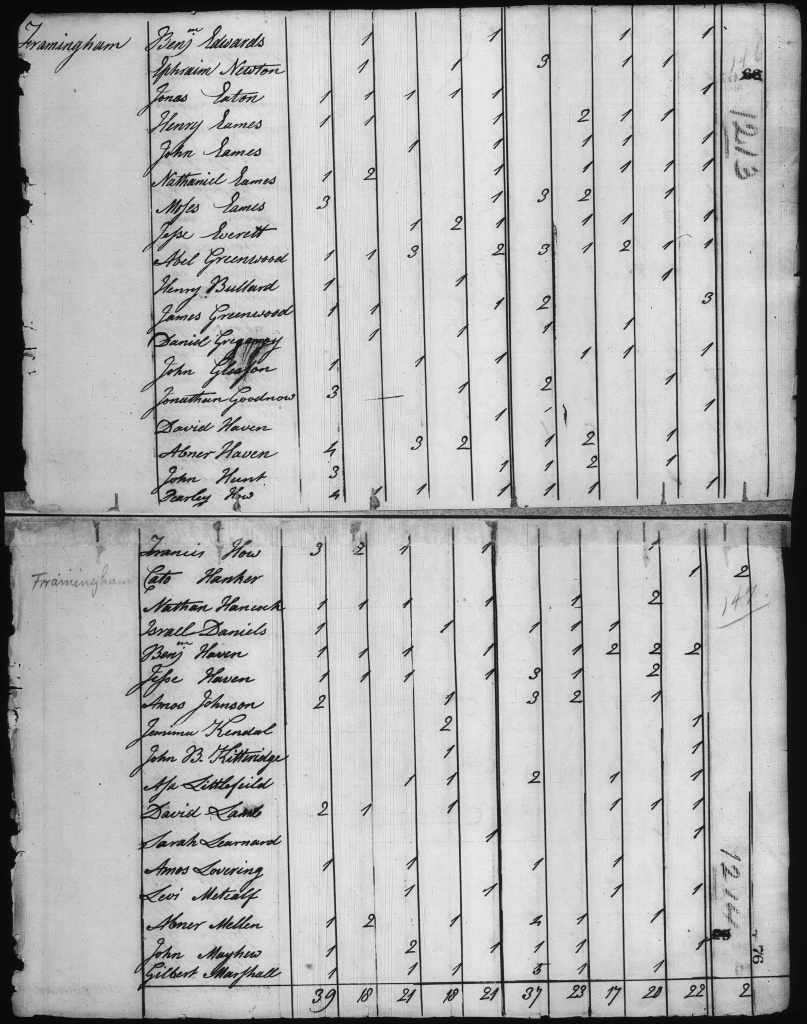 Framingham Benjmn Edwards 1 1 1 1
Ephraim Newton 1 1 3 1 1
Jonas Eaton 1 1 1 1 1 1
Henry Eames 1 1 1 2 1 1
John Eames 1 1 1 1 1
Nathaniel Eames 1 2 1 1 1 1 1
Moses Eames 3 1 3 2 1
Jesse Everett 1 2 1 1 1 1
Abel Greenwood 1 1 3 2 3 1 2 1 1
Henry Bullard 1 1 1
James Greenwood 1 1 1 2 3
Daniel 1 1 1 1
John Gleason 1 1 1 1 1 1
Jonathan Goodnow 3 1 2 1
David Haven 1 1
Abner Haven 4 3 2 1 2 1
John Hunt 3 1 1 2 1
Pearley How 4 1 1 1 1 1 1
1213
Francis How 3 2 1 1 1
Framingham Cato Hanker 1 2
Nathan Hancock 1 1 1 1 1 2
147
Israel Daniels 1 1 1 1 1
Benjmn Haven 1 1 1 1 1 2 2 2
Jesse Haven 1 1 1 1 3 1 2
Amos Johnson 2 1 3 2 1
Jemima Kendal 2 1
John B. Kittridge 1 1
Asa Littlefeild 1 1 2 1 1
David Lamb 2 1 1 1 1 1
Sarah Learnard 1 1
Amos Lovering 1 1 1 1
Levi Metcalf 1 1 1 1
Abner Mellen 1 2 1 4 1 1
John Mayhew 1 2 1 1 1 1
Gilbert Marshall 1 1 1 5 1 1
1214
76
39 18 21 18 21 37 23 17 20 22 2